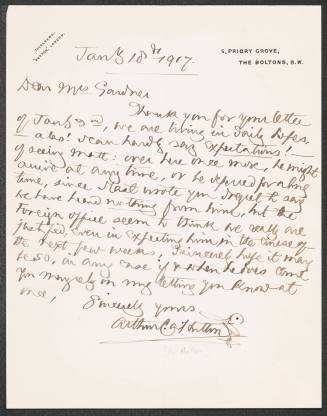 TELEGRAMS:
5, PRIORY GROVE,
THE BOLTONS, S.W.
Jany 18th 1917.
Dear Mrs Gardner
Thank you for your letter
of Jany 3rd, we are living in daily hopes,
alas! I can hardly say expectations!
of seeing Matt: over here once more, he might
arrive at any time, or be delayed for a long
time, since I last wrote you I regret to say
we have heard nothing from him, but the
Foreign Office seem to think we really are
justified, even in expecting him in the course of
the next few weeks! I sincerely hope it may
be so, in any case if & when he does come
you may rely on my letting you know at
once,
Sincerely yours
Arthur